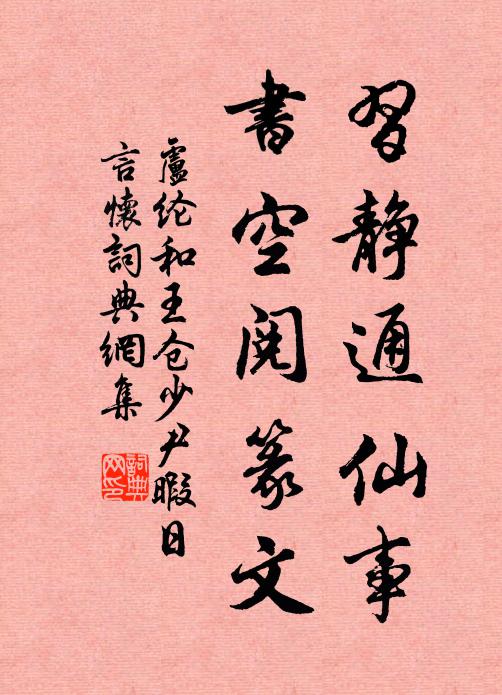 習静通仙事
書空閱篆文
盧纶和王仓少尹暇日
言懷詞典網集
詞典网印